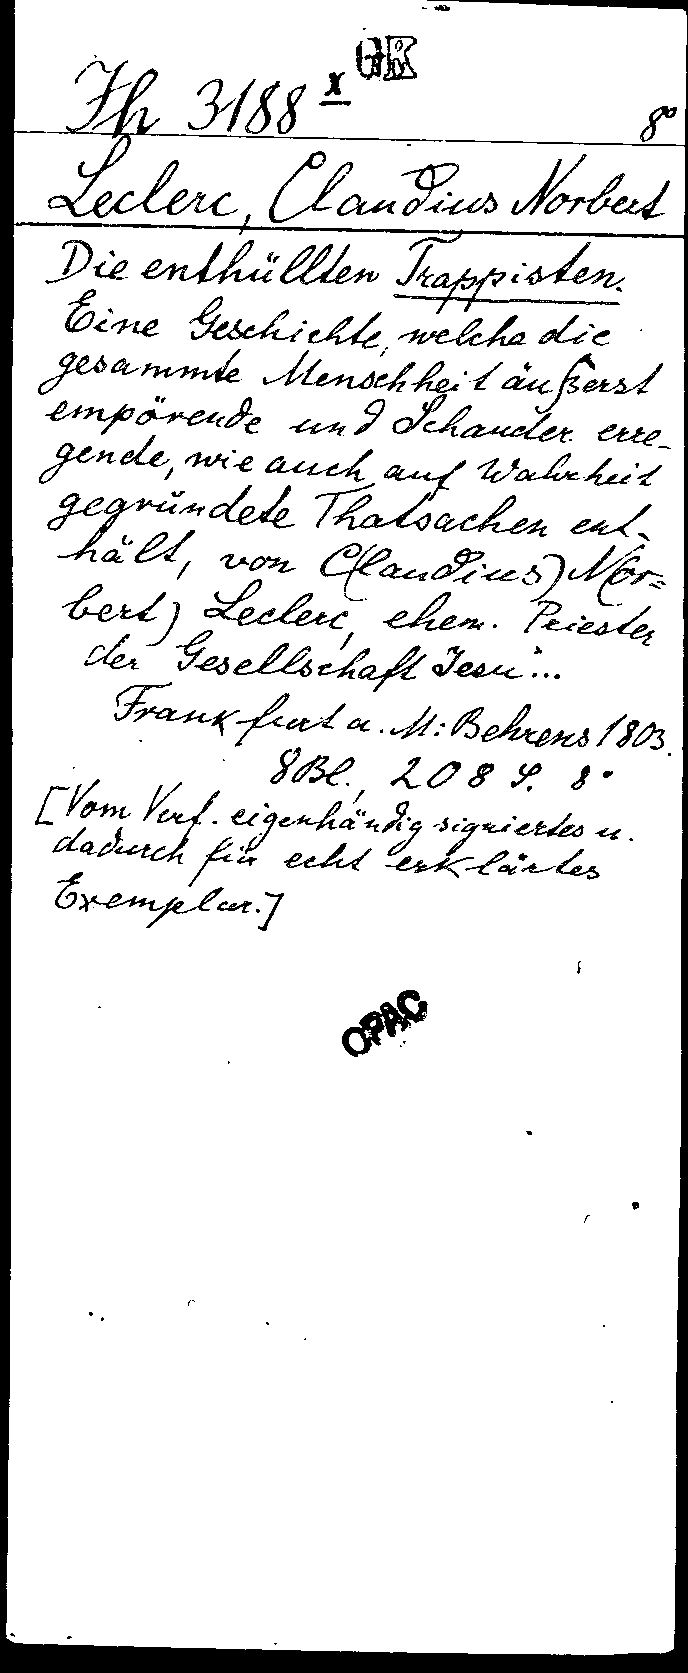 GK
Jh 3188 x
8°
Leclerc, Claudius Norbert
Die enthüllten Trappisten.
Eine Geschichte, welche die
gesammte Menschheit äußerst
empörende und Schauder erre-
gende, wie auch auf Wahrheit
gegründete Thatsachen ent-
hält, von C(laudius) N(or=
bert) Leclerc, ehem. Priester
der Gesellschaft Jesu...
Frankfurt a. M: Behrens 1803.
8 Bl., 208 S. 8°
[Vom Verf. eigenhändig signiertes u.
dadurch für echt erklärtes
Exemplar.]
OPAC